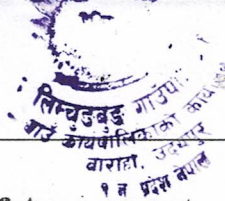 लिम्चुङबुङ गाउँपा
गाउँ कार्यपालिकाको कार्या
बाराहा, उदयपुर
१ नं प्रदेश नेपाल